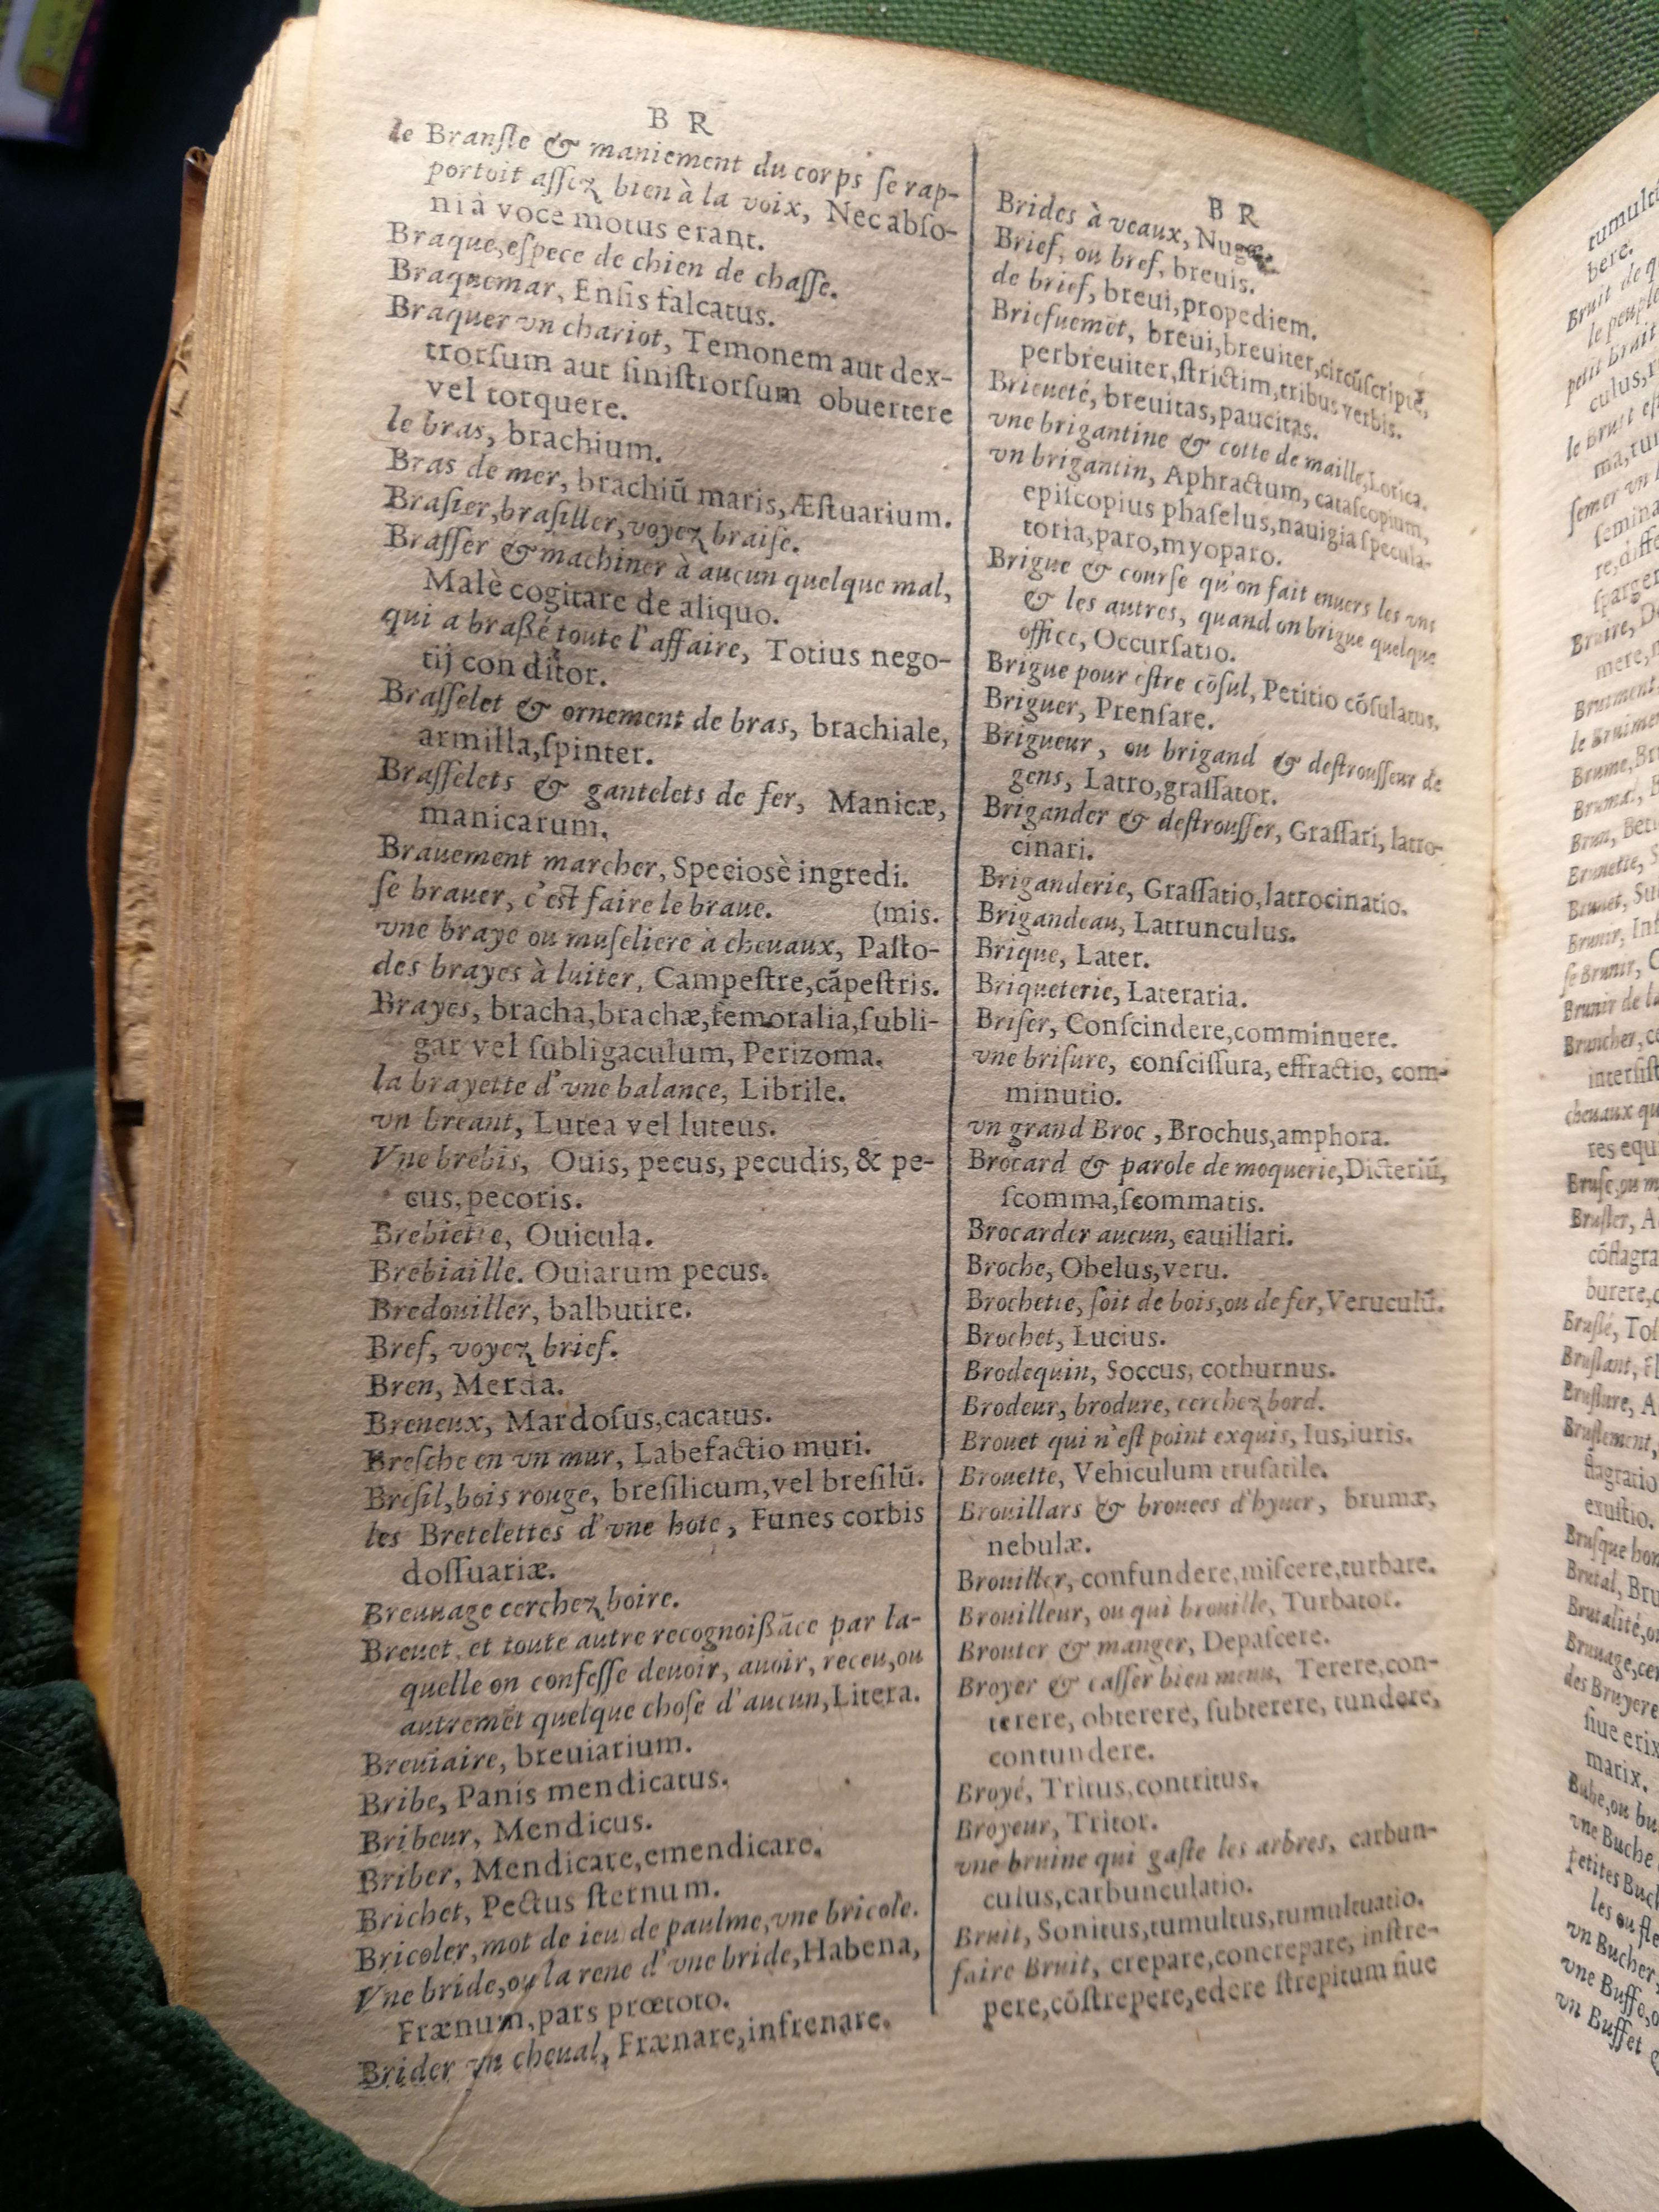 B R
le Branſle & maniement du corps ſe rap-
portoit aſſez bien à la voix, Nec abſo-
ni à voce motus erant.
Braque, eſpece de chien de chaſſe.
Braquemar, Enſis falcatus.
Braquer vn chariot, Temonem aut dex-
trorſum aut ſiniſtrorſum obuertere
vel torquere.
le bras, brachium.
Bras de mer, brachiū maris, Æſtuarium.
Braſier, braſiller, voyez braiſe.
Braſſer & machiner à aucun quelque mal,
Malè cogitare de aliquo.
qui a braßé toute l'affaire, Totius nego-
tij con ditor.
Braſſelet & ornement de bras, brachiale,
armilla, ſpinter.
Braſſelets & gantelets de fer, Manicæ,
manicarum.
Brauement marcher, Speciosè ingredi.
ſe brauer, c'eſt faire le braue. (mis.
vne braye ou muſeliere à cheuaux, Paſto-
des brayes à luiter, Campeſtre, cāpeſtris.
Brayes, bracha, brachæ, femoralia, ſubli-
gar vel ſubligaculum, Perizoma.
la brayette d'vne balance, Librile.
vn breant, Lutea vel luteus.
Vne brebis, Ouis, pecus, pecudis, & pe-
cus, pecoris.
Brebiette, Ouicula.
Brebiaille. Ouiarum pecus.
Bredouiller, balbutire.
Bref, voyez brief.
Bren, Merda.
Breneux, Mardoſus, cacatus.
Breſche en vn mur, Labefactio muri.
Breſil, bois rouge, breſilicum, vel breſilū.
les Bretelettes d'vne hote, Funes corbis
doſſuariæ.
Breuuage cerchez boire.
Breuet, et toute autre recognoißāce par la-
quelle on confeſſe deuoir, auoir, receu, ou
autremēt quelque choſe d'aucun, Litera.
Breuiaire, breuiarium.
Bribe, Panis mendicatus.
Bribeur, Mendicus.
Briber, Mendicare, emendicare.
Brichet, Pectus ſternum.
Bricoler, mot de ieu de paulme, vne bricole.
Vne bride, ou la rene d'vne bride, Habena,
Frænum, pars prœtoto.
Brider vn cheual, Frænare, infrenare.
B R
Brides à veaux, Nugæ.
Brief, ou bref, breuis.
de brief, breui, propediem.
Briefuemēt, breui, breuiter, circūſcriptè,
perbreuiter, ſtrictim, tribus verbis.
Brieueté, breuitas, paucitas.
vne brigantine & cotte de maille, Lorica.
vn brigantin, Aphractum, cataſcopium,
epiſcopius phaſelus, nauigia ſpecula-
toria, paro, myoparo.
Brigue & courſe qu'on fait enuers les vns
& les autres, quand on brigue quelque
office, Occurſatio.
Brigue pour eſtre cōſul, Petitio cōſulatus.
Briguer, Prenſare.
Brigueur, ou brigand & deſtrouſſeur de
gens, Latro, graſſator.
Brigander & deſtrouſſer, Graſſari, latro-
cinari.
Briganderie, Graſſatio, latrocinatio.
Brigandeau, Latrunculus.
Brique, Later.
Briqueterie, Lateraria.
Briſer, Conſcindere, comminuere.
vne briſure, conſciſſura, effractio, com-
minutio.
vn grand Broc, Brochus, amphora.
Brocard & parole de moquerie, Dicteriū,
ſcomma, ſcommatis.
Brocarder aucun, cauillari.
Broche, Obelus, veru.
Brochette, ſoit de bois, ou de fer, Veruculū.
Brochet, Lucius.
Brodequin, Soccus, cothurnus.
Brodeur, brodure, cerchez bord.
Brouet qui n'eſt point exquis, Ius, iuris.
Brouette, Vehiculum truſatile.
Brouillars & brouees d'hyuer, brumæ,
nebulæ.
Brouiller, confundere, miſcere, turbare.
Brouilleur, ou qui brouille, Turbator.
Brouter & manger, Depaſcere.
Broyer & caſſer bien menu, Terere, con-
terere, obterere, ſubterere, tundere,
contundere.
Broyé, Tritus, contritus.
Broyeur, Tritor.
vne bruine qui gaſte les arbres, carbun-
culus, carbunculatio.
Bruit, Sonitus, tumultus, tumultuatio.
faire Bruit, crepare, concrepare, inſtre-
pere, cōſtrepere, edere ſtrepitum ſiue
tumult
bere.
Bruit de q
le peuple
petit bruit
culus, r
le bruit eſ
ma, ru
ſemer vn
ſemina
re, diffe
ſparger
Bruire, D
mere,
Bruiment,
le Bruime
Brume, Br
Brumal, B
Brun, Beti
Brunette, S
Brunet, Su
Brunir, Inf
ſe Brunir, C
Brunir de la
Bruncher, ce
interſiſt
cheuaux qu
res equ
Bruſc, ou m
Bruſler, A
cōflagra
burere, c
Bruſlé, Toſ
Bruſlant, Fl
Bruſlure, A
Bruſlement,
flagratio
exuſtio.
Bruſque hom
Brutal, Bru
Brutalité, o
Bruuage, cer
des Bruyere
ſiue erix
matix.
Bube, ou bu
vne Buche
petites Buch
les ou ſle
vn Bucher,
vne Buffe, o
vn Buffet &